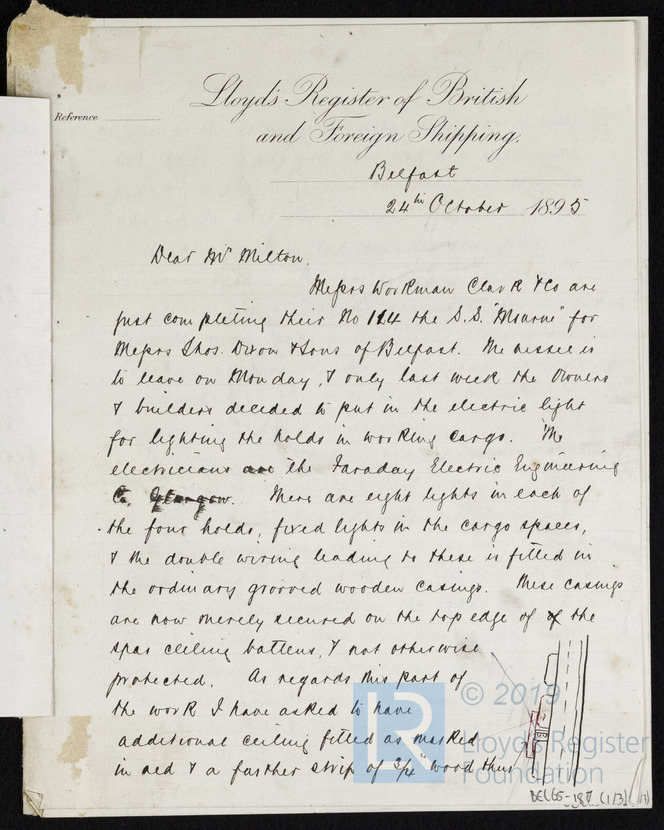 Lloyd's Register of British
and Foreign Shipping.
Reference
Belfast
24th October 1895
Dear Mr Milton,
Messrs Workman Clark & Co are
just completing their No 114 the S.S. "Mourne" for
Messrs Thos. Dixon & Sons of Belfast. The vessel is
to leave on Monday, & only last week the Owners
& builders decided to put in the electric light
for lighting the holds in working cargo. The
electricians are the Faraday Electric Engineering
Co. Glasgow. There are eight lights in each of
the four holds, fixed lights in the cargo spaces,
& the double wiring leading to these is fitted in
the ordinary grooved wooden casings. These casings
are now merely secured on the top edge of of the
spar ceiling battens, & not otherwise
protected. As regards this part of
the work I have asked to have
additional ceiling fitted as marked
in red & a further strip of 3/4" wood thus
© 2019
Lloyd's Register
Foundation
LR
BEL65-187 (1/3)